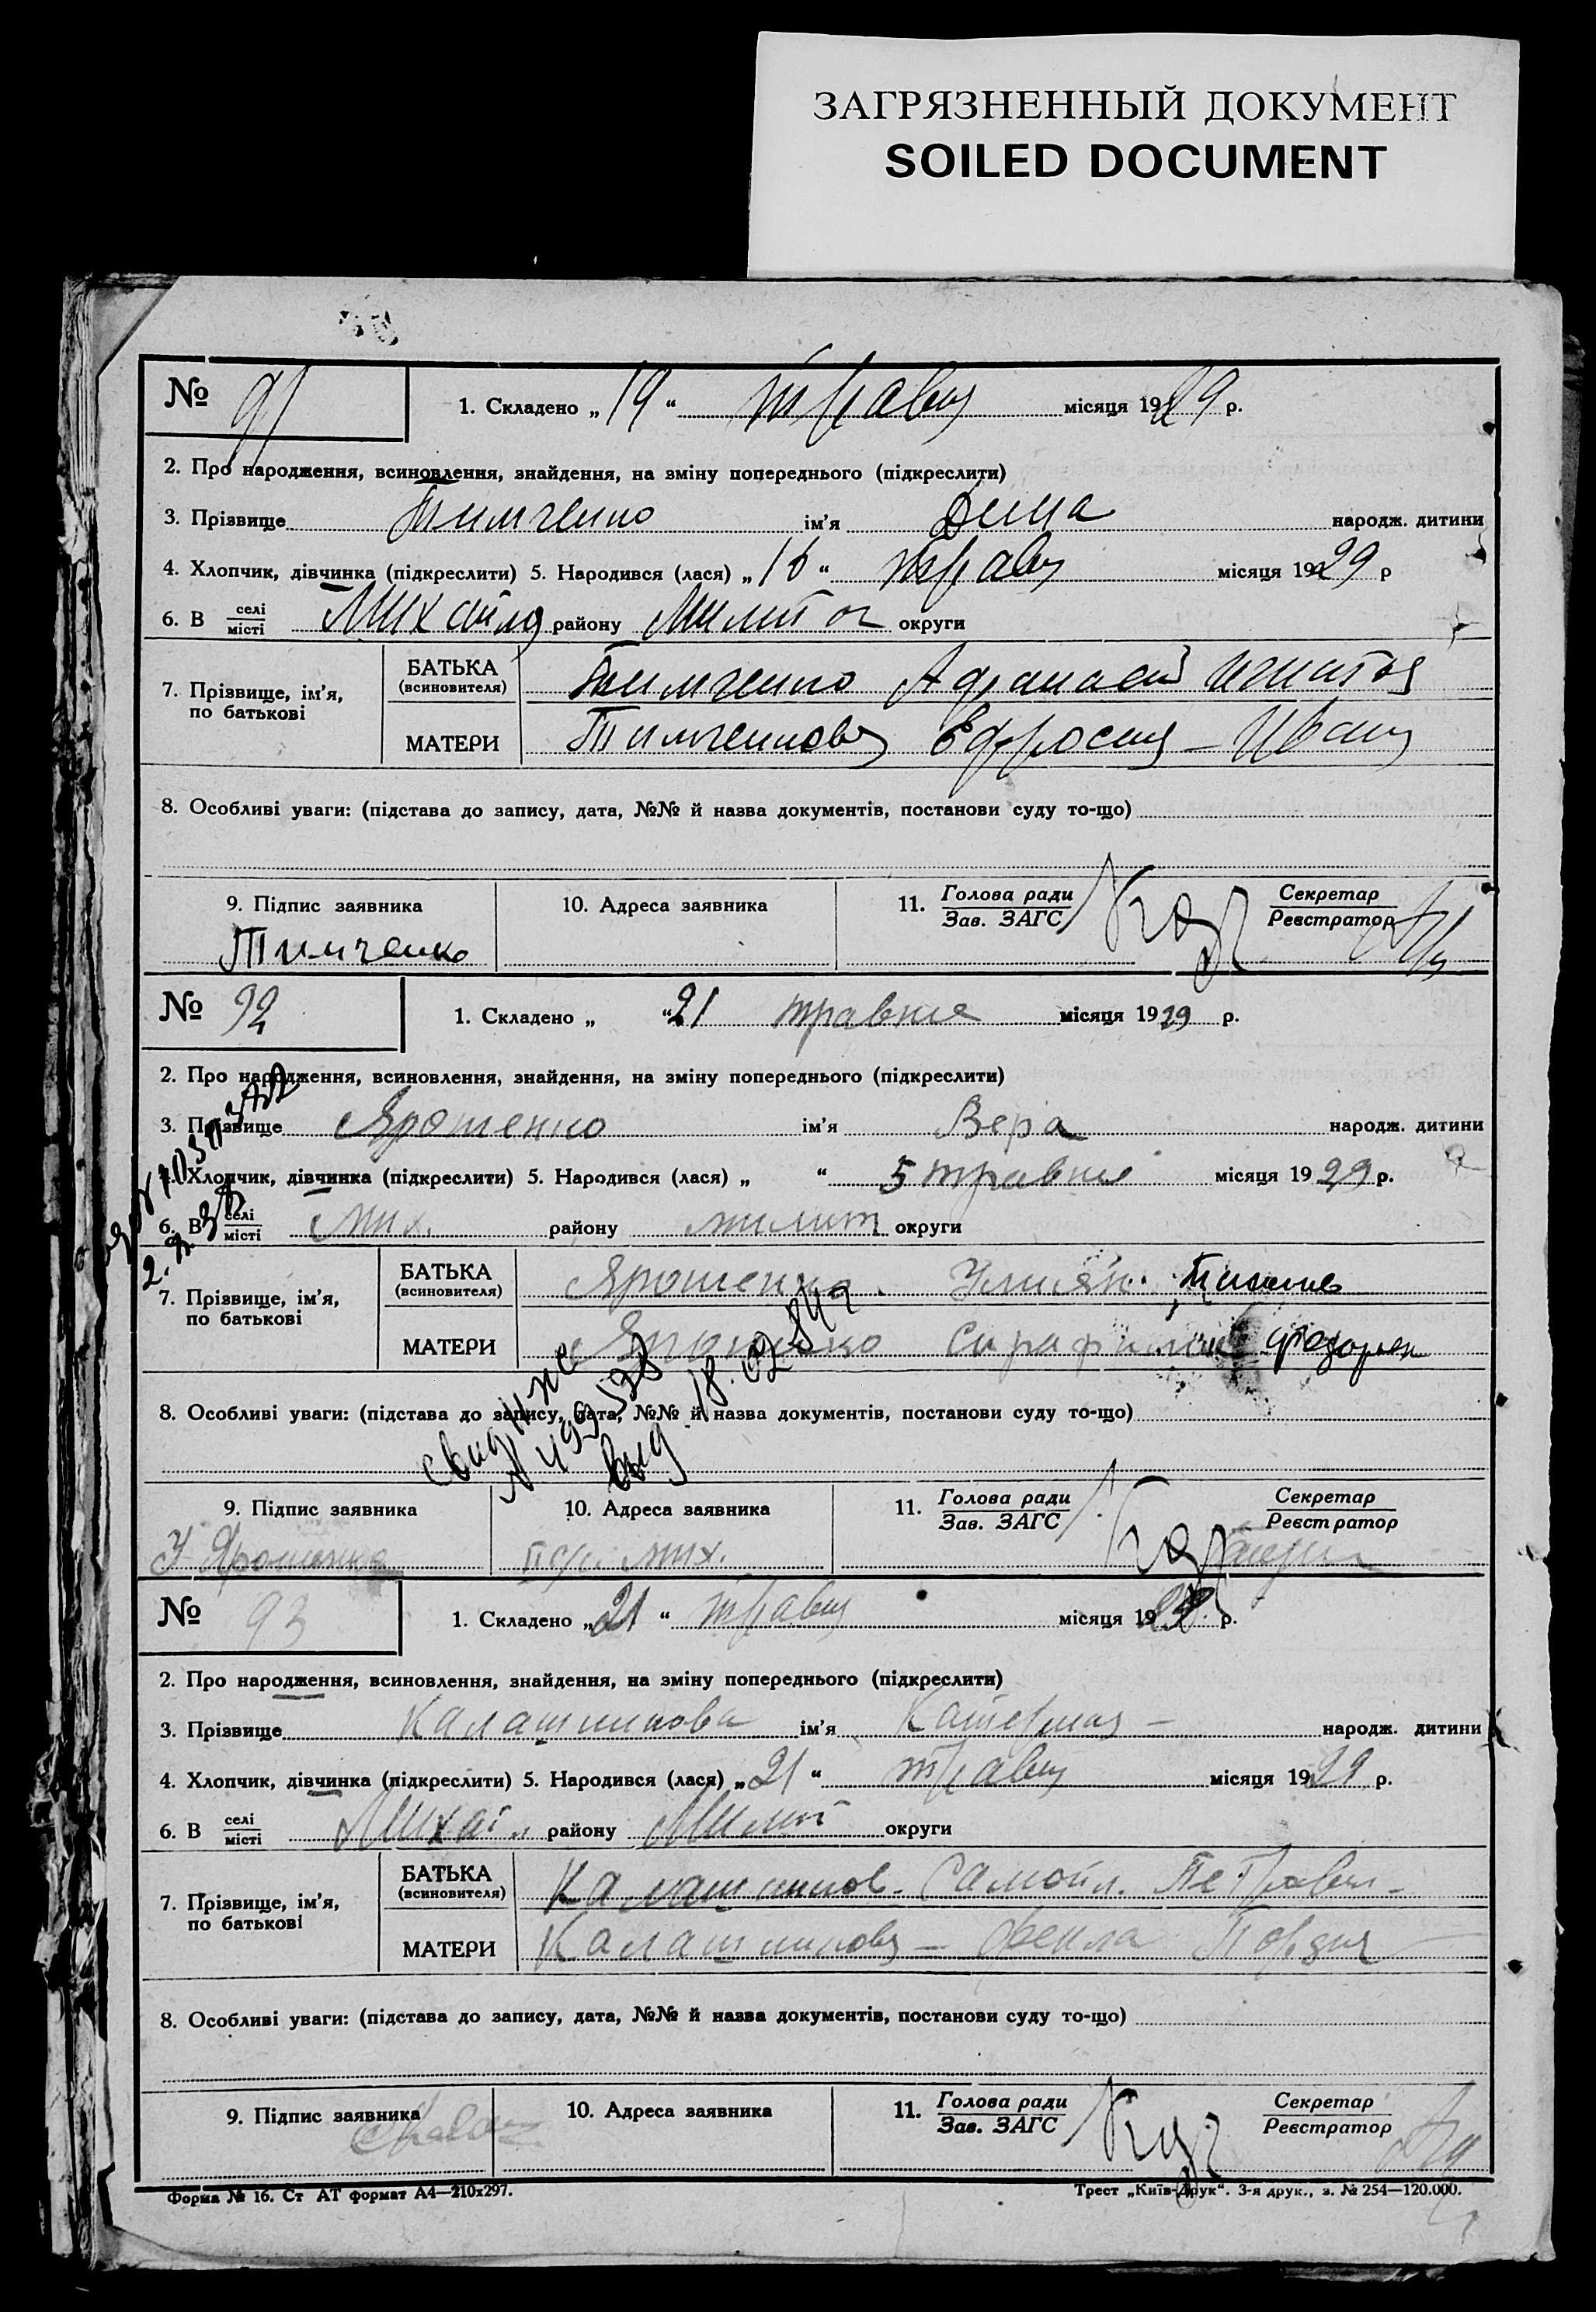 ЗАГРЯЗНЕННЫЙ ДОКУМЕНТ
SOILED DOCUMENT
№ 91 1. Складено „19“ травня місяця 1929 р.
2. Про народження, всиновлення, знайдення, на зміну попереднього (підкреслити)
3. Прізвище Тимченко ім'я Дина народж. дитини
4. Хлопчик, дівчинка (підкреслити) 5. Народився (лася) „16“ травня місяця 1929 р
6. В селі/місті Михайло району Мелитоп округи
7. Прізвище, ім'я, по батькові
БАТЬКА (всиновителя) Тимченко Афанасий Игнатов
МАТЕРИ Тимченкова Ефросиня - Иван
8. Особливі уваги: (підстава до запису, дата, №№ й назва документів, постанови суду то-що)
9. Підпис заявника 10. Адреса заявника 11. Голова ради/Зав. ЗАГС Секретар/Реєстратор
Тимченко
№ 92 1. Складено „ “21 травня місяця 1929 р.
2. Про народження, всиновлення, знайдення, на зміну попереднього (підкреслити)
3. Прізвище Ярошенко ім'я Вера народж. дитини
4. Хлопчик, дівчинка (підкреслити) 5. Народився (лася) „ “ 5 травня місяця 1929 р.
6. В селі/місті Мих. району Мелит округи
7. Прізвище, ім'я, по батькові
БАТЬКА (всиновителя) Ярошенко Улиян.
МАТЕРИ Ярошенко
8. Особливі уваги: (підстава до запису, дата, №№ й назва документів, постанови суду то-що)
9. Підпис заявника 10. Адреса заявника 11. Голова ради/Зав. ЗАГС Секретар/Реєстратор
У Ярошенко Мих.
№ 93 1. Складено „21“ травня місяця 1929 р.
2. Про народження, всиновлення, знайдення, на зміну попереднього (підкреслити)
3. Прізвище Калашникова ім'я Катерина - народж. дитини
4. Хлопчик, дівчинка (підкреслити) 5. Народився (лася) „21“ травня місяця 1929 р.
6. В селі/місті Михай району Мелит округи
7. Прізвище, ім'я, по батькові
БАТЬКА (всиновителя) Калашников. Самойл. Петрович -
МАТЕРИ Калашникова - Фекла
8. Особливі уваги: (підстава до запису, дата, №№ й назва документів, постанови суду то-що)
9. Підпис заявника 10. Адреса заявника 11. Голова ради/Зав. ЗАГС Секретар/Реєстратор
Форма № 16. Ст АТ формат А4—210х297. Трест „Київ-Друк“. 3-я друк., з. № 254—120.000.